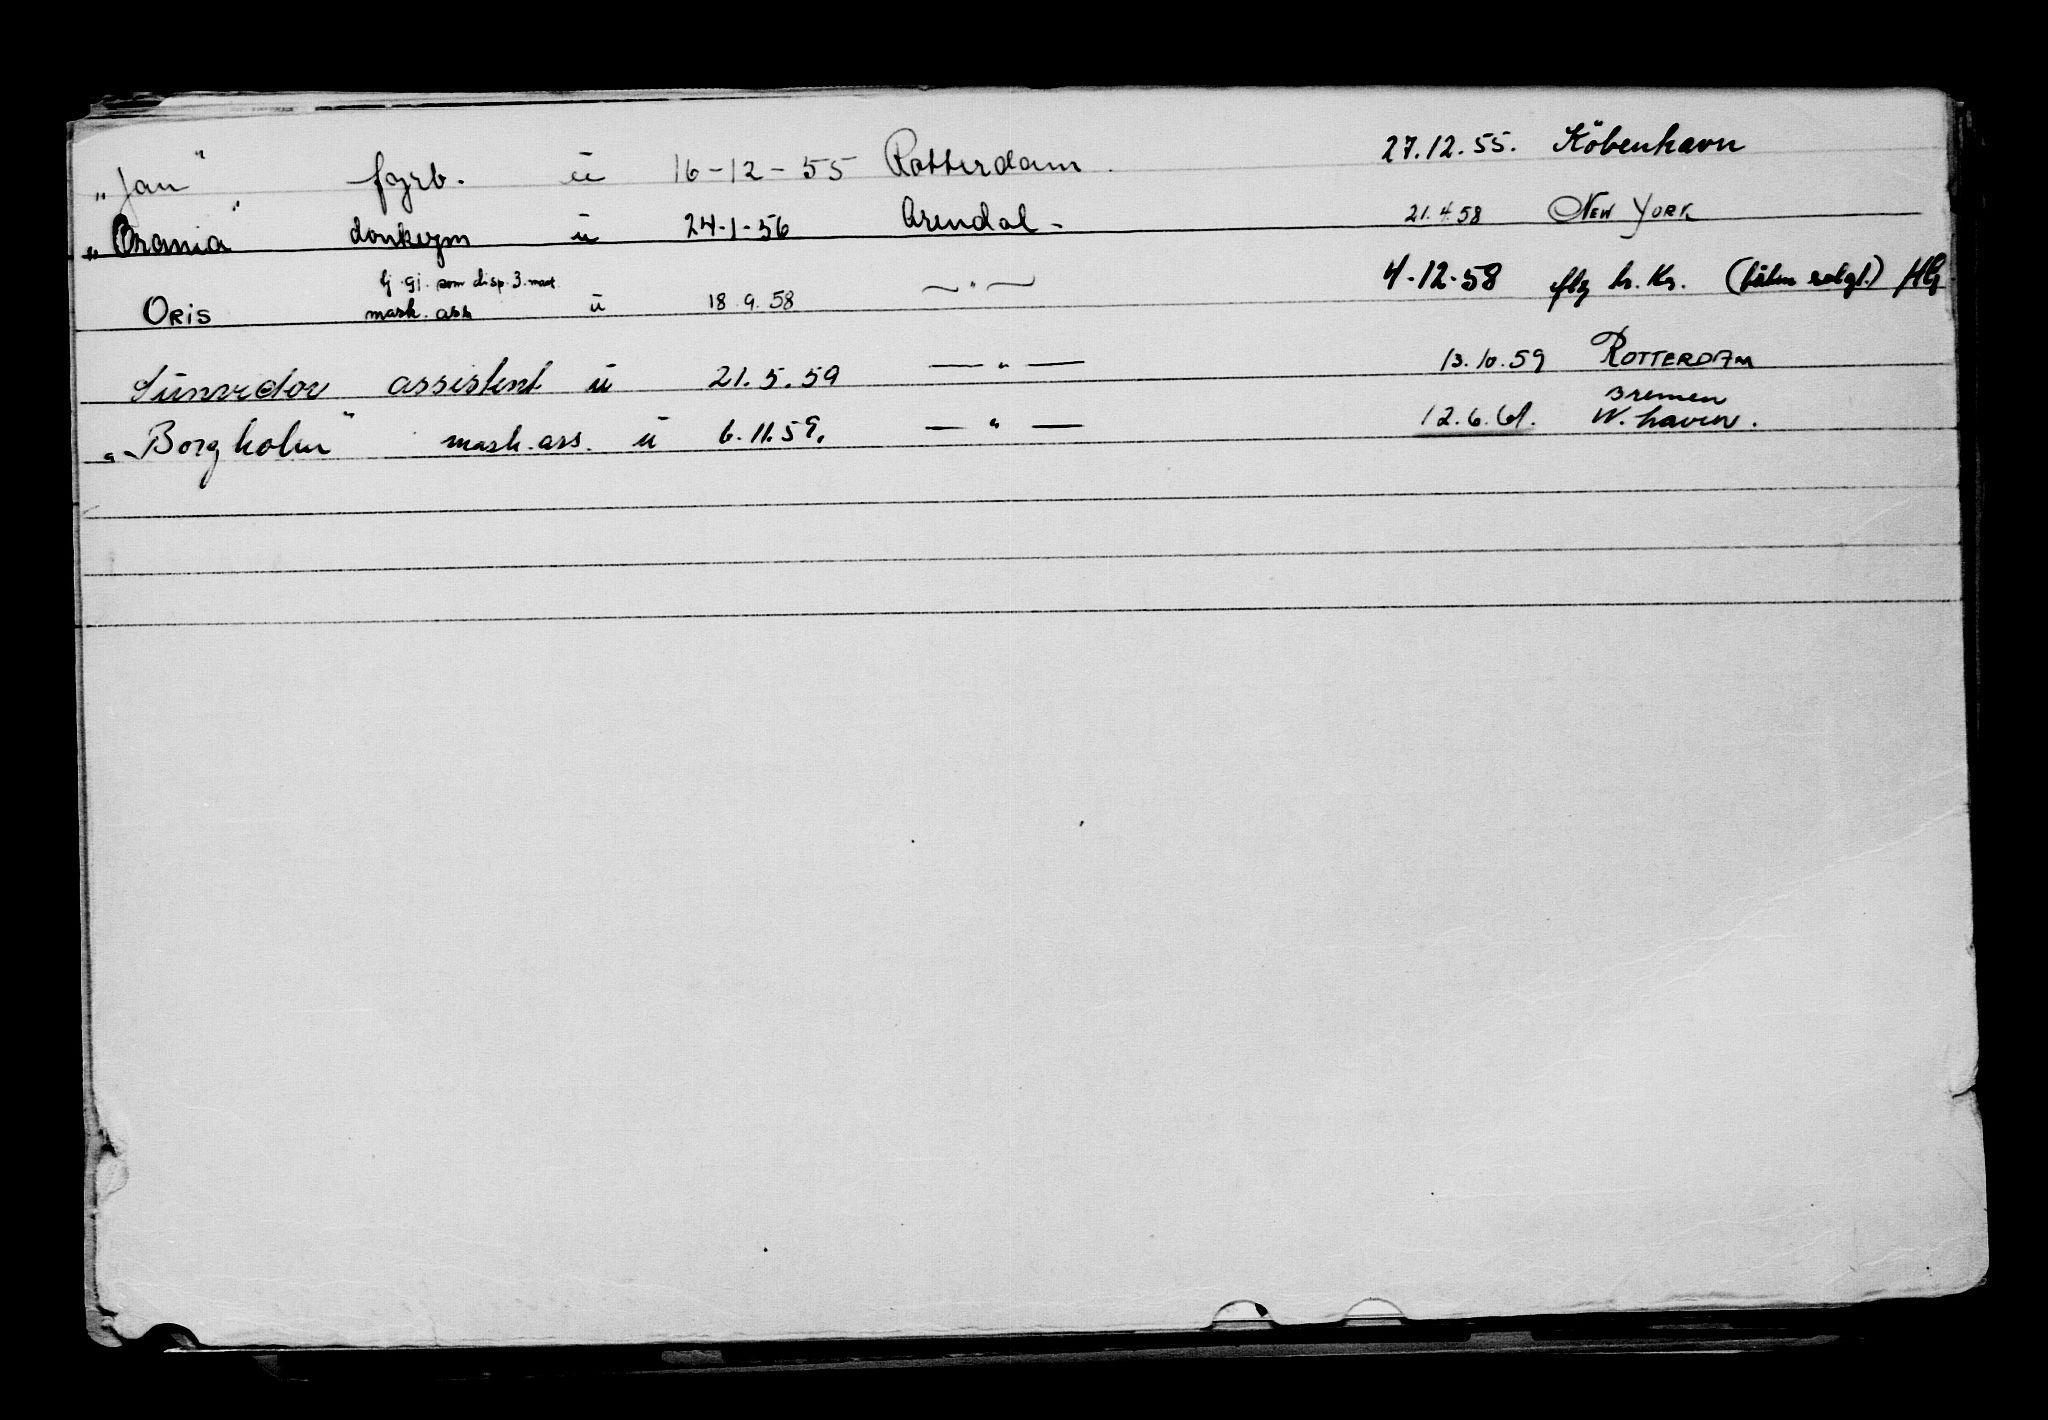 "Jan" fyrb. ü 16-12-55 Rotterdam. 27.12.55. Köbenhavn
"Orania" donkeym ü 24-1-56 Arendal - 21.4.58 NEW YORK
som disp. 3. mask
ORIS mask. ass ü 18.9.58 — " — 4-12-58
assistent ü 21.5.59 — " — 13.10.59 ROTTERDAM
Bremen
"Borgholm" mask.ass. ü 6.11.59. — " — 12.6.61. W. haven.